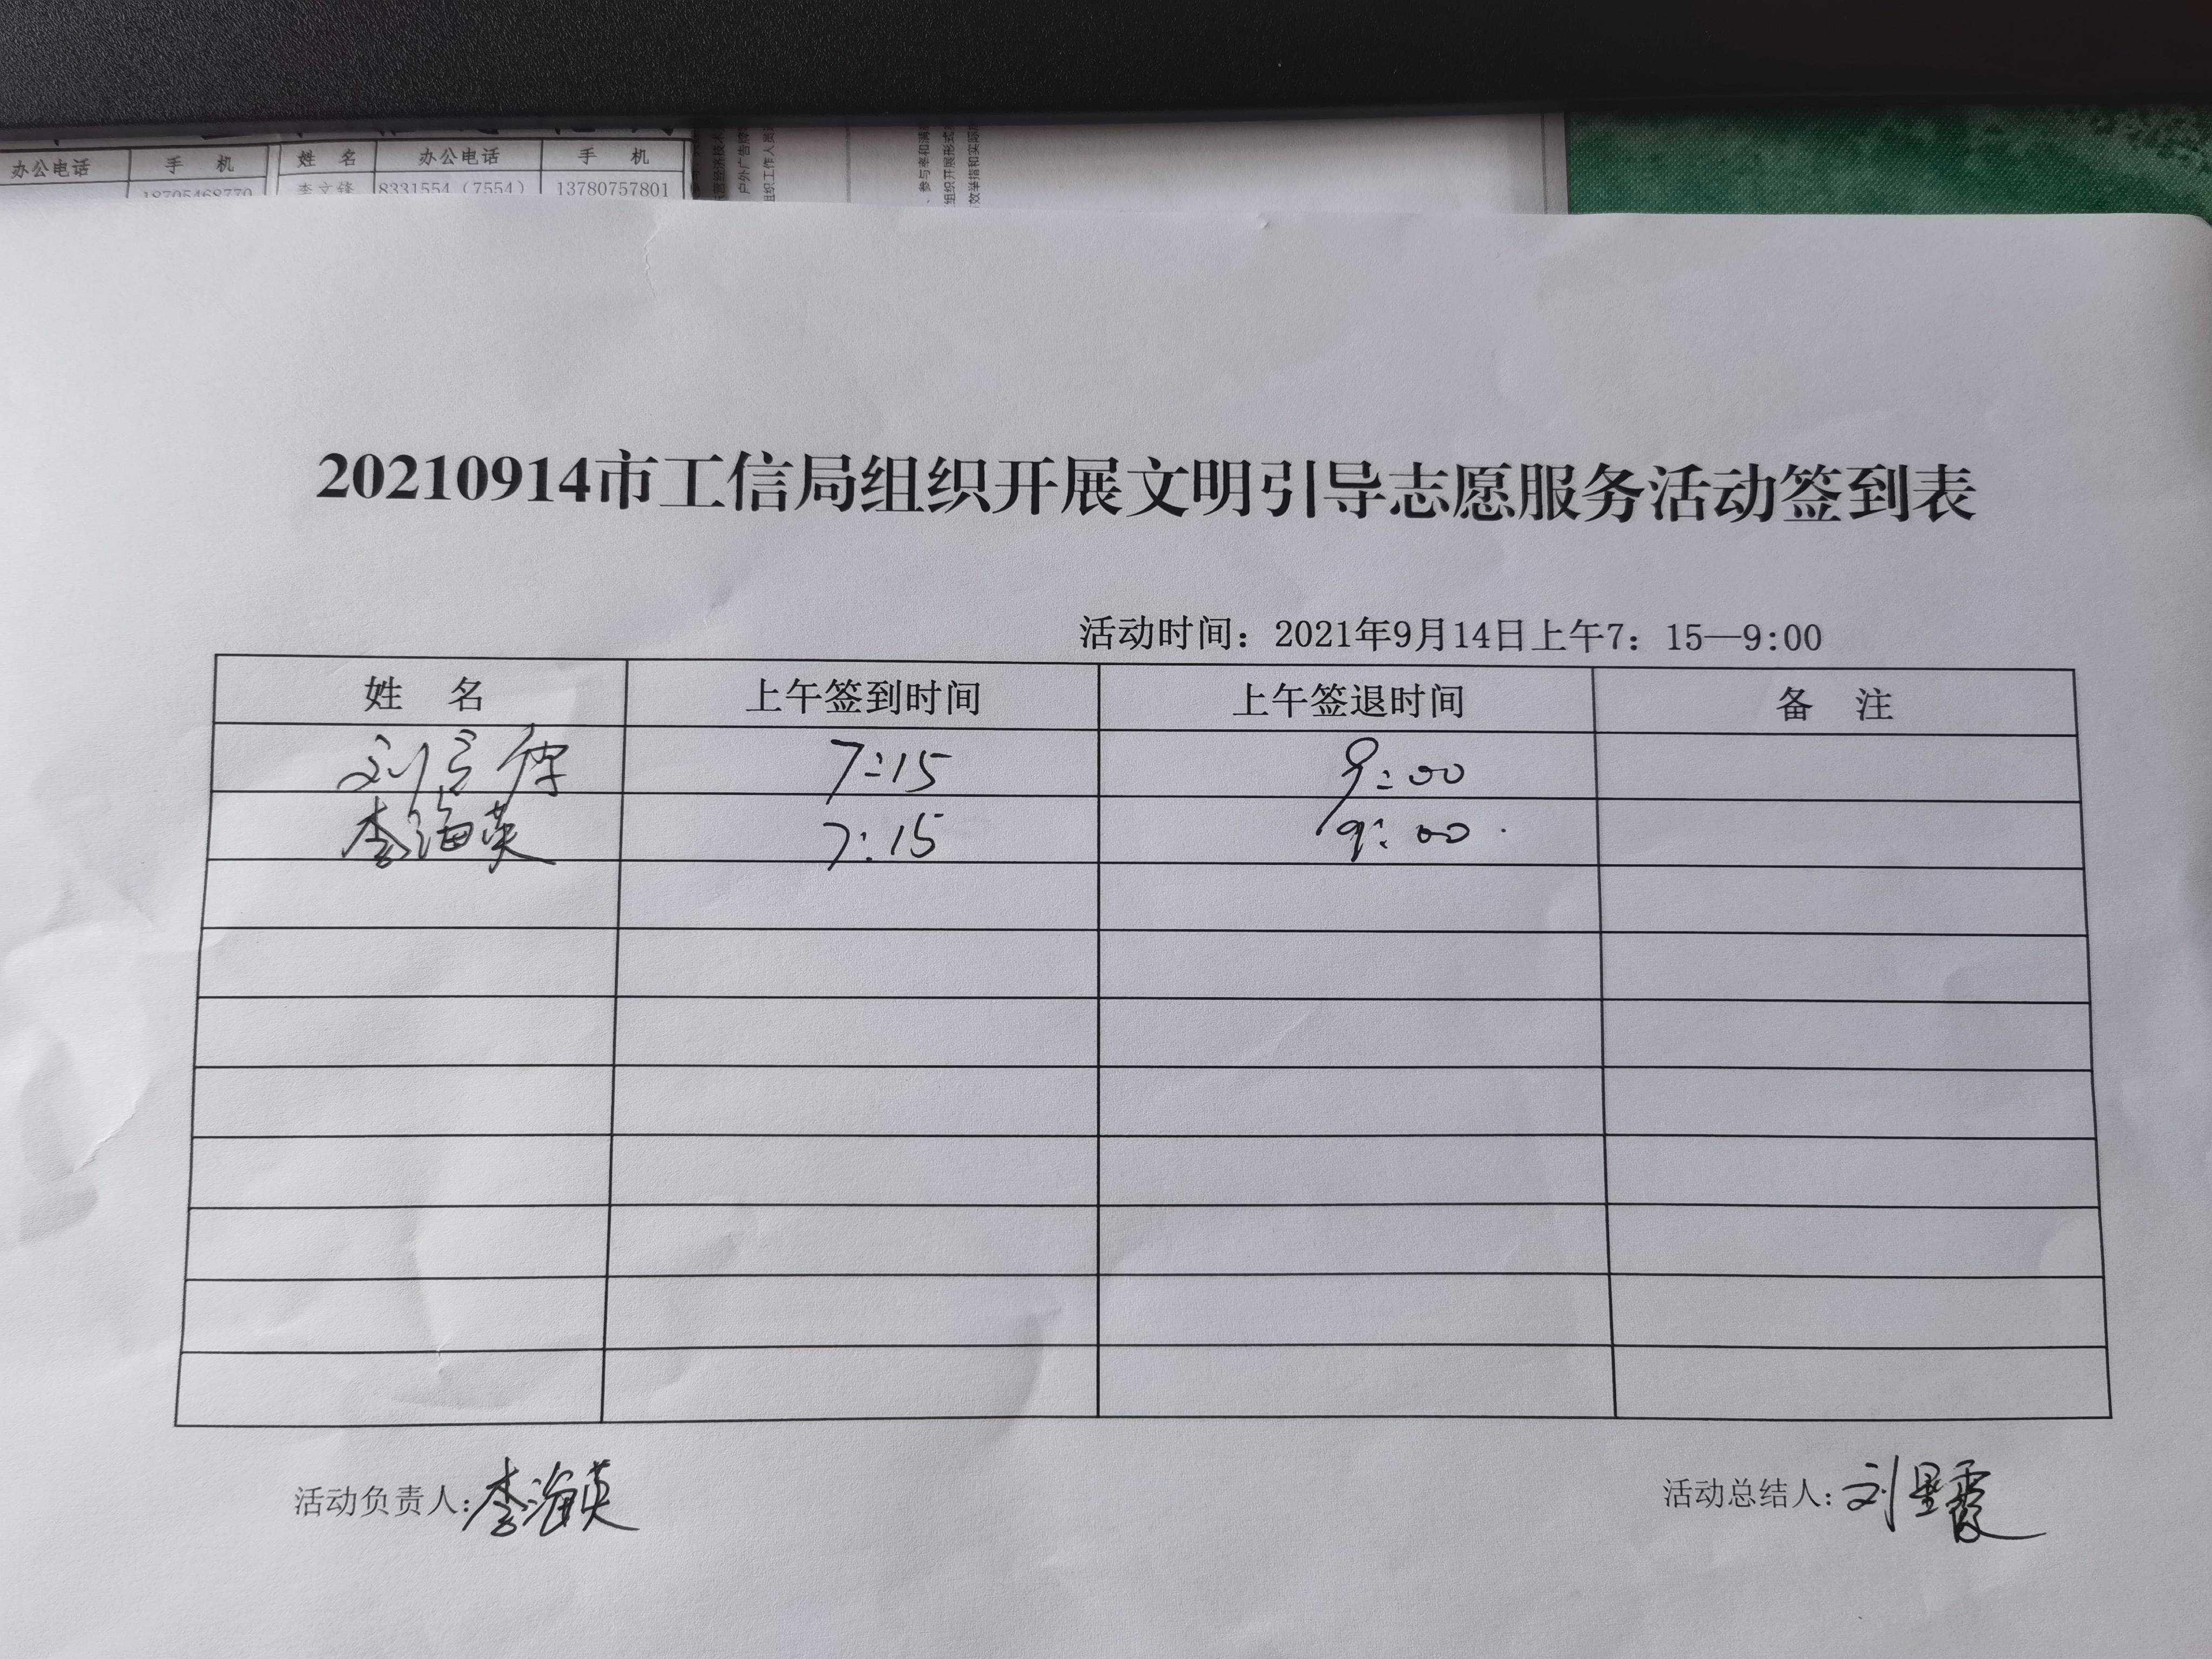 办公电话 手 机 姓 名 办公电话 手 机
18705468770 李文锋 8331554（7554） 13780757801
20210914市工信局组织开展文明引导志愿服务活动签到表
活动时间：2021年9月14日上午7：15—9:00
姓 名 上午签到时间 上午签退时间 备 注
7:15 9:00
李海英 7:15 9:00
活动负责人：李海英 活动总结人：刘星霞